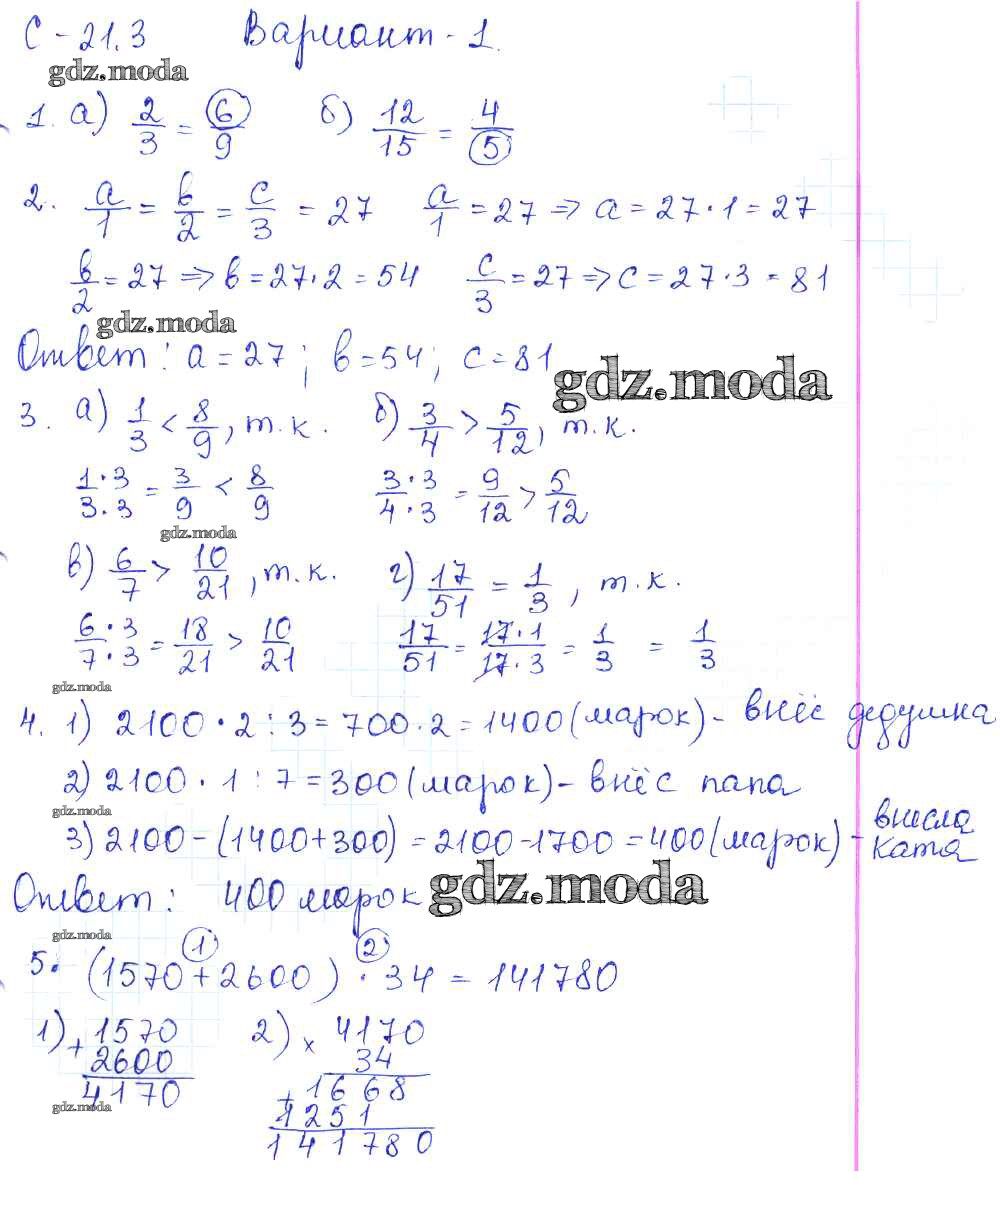 С-21.3 Вариант-1.
gdz.moda
1. а) 2/3 = 6/9 б) 12/15 = 4/5
2. а/1 = в/2 = с/3 = 27 а/1 = 27 => а = 27·1 = 27
в/2 = 27 => в = 27·2 = 54 с/3 = 27 => с = 27·3 = 81
gdz.moda
Ответ: а = 27; в = 54; с = 81
gdz.moda
3. а) 1/3 < 8/9, т.к. б) 3/4 > 5/12, т.к.
1·3/3·3 = 3/9 < 8/9 3·3/4·3 = 9/12 > 5/12
gdz.moda
в) 6/7 > 10/21, т.к. г) 17/51 = 1/3, т.к.
6·3/7·3 = 18/21 > 10/21 17/51 = 17·1/17·3 = 1/3 = 1/3
gdz.moda
4. 1) 2100·2:3 = 700·2 = 1400 (марок) - внёс дедушка
2) 2100·1:7 = 300 (марок) - внёс папа
gdz.moda
3) 2100-(1400+300) = 2100-1700 = 400 (марок) - внесла Катя
Ответ: 400 марок
gdz.moda
gdz.moda
1 2
5. (1570+2600)·34 = 141780
1) + 1570 2) × 4170
2600 34
4170 + 1668
gdz.moda
1251
141780